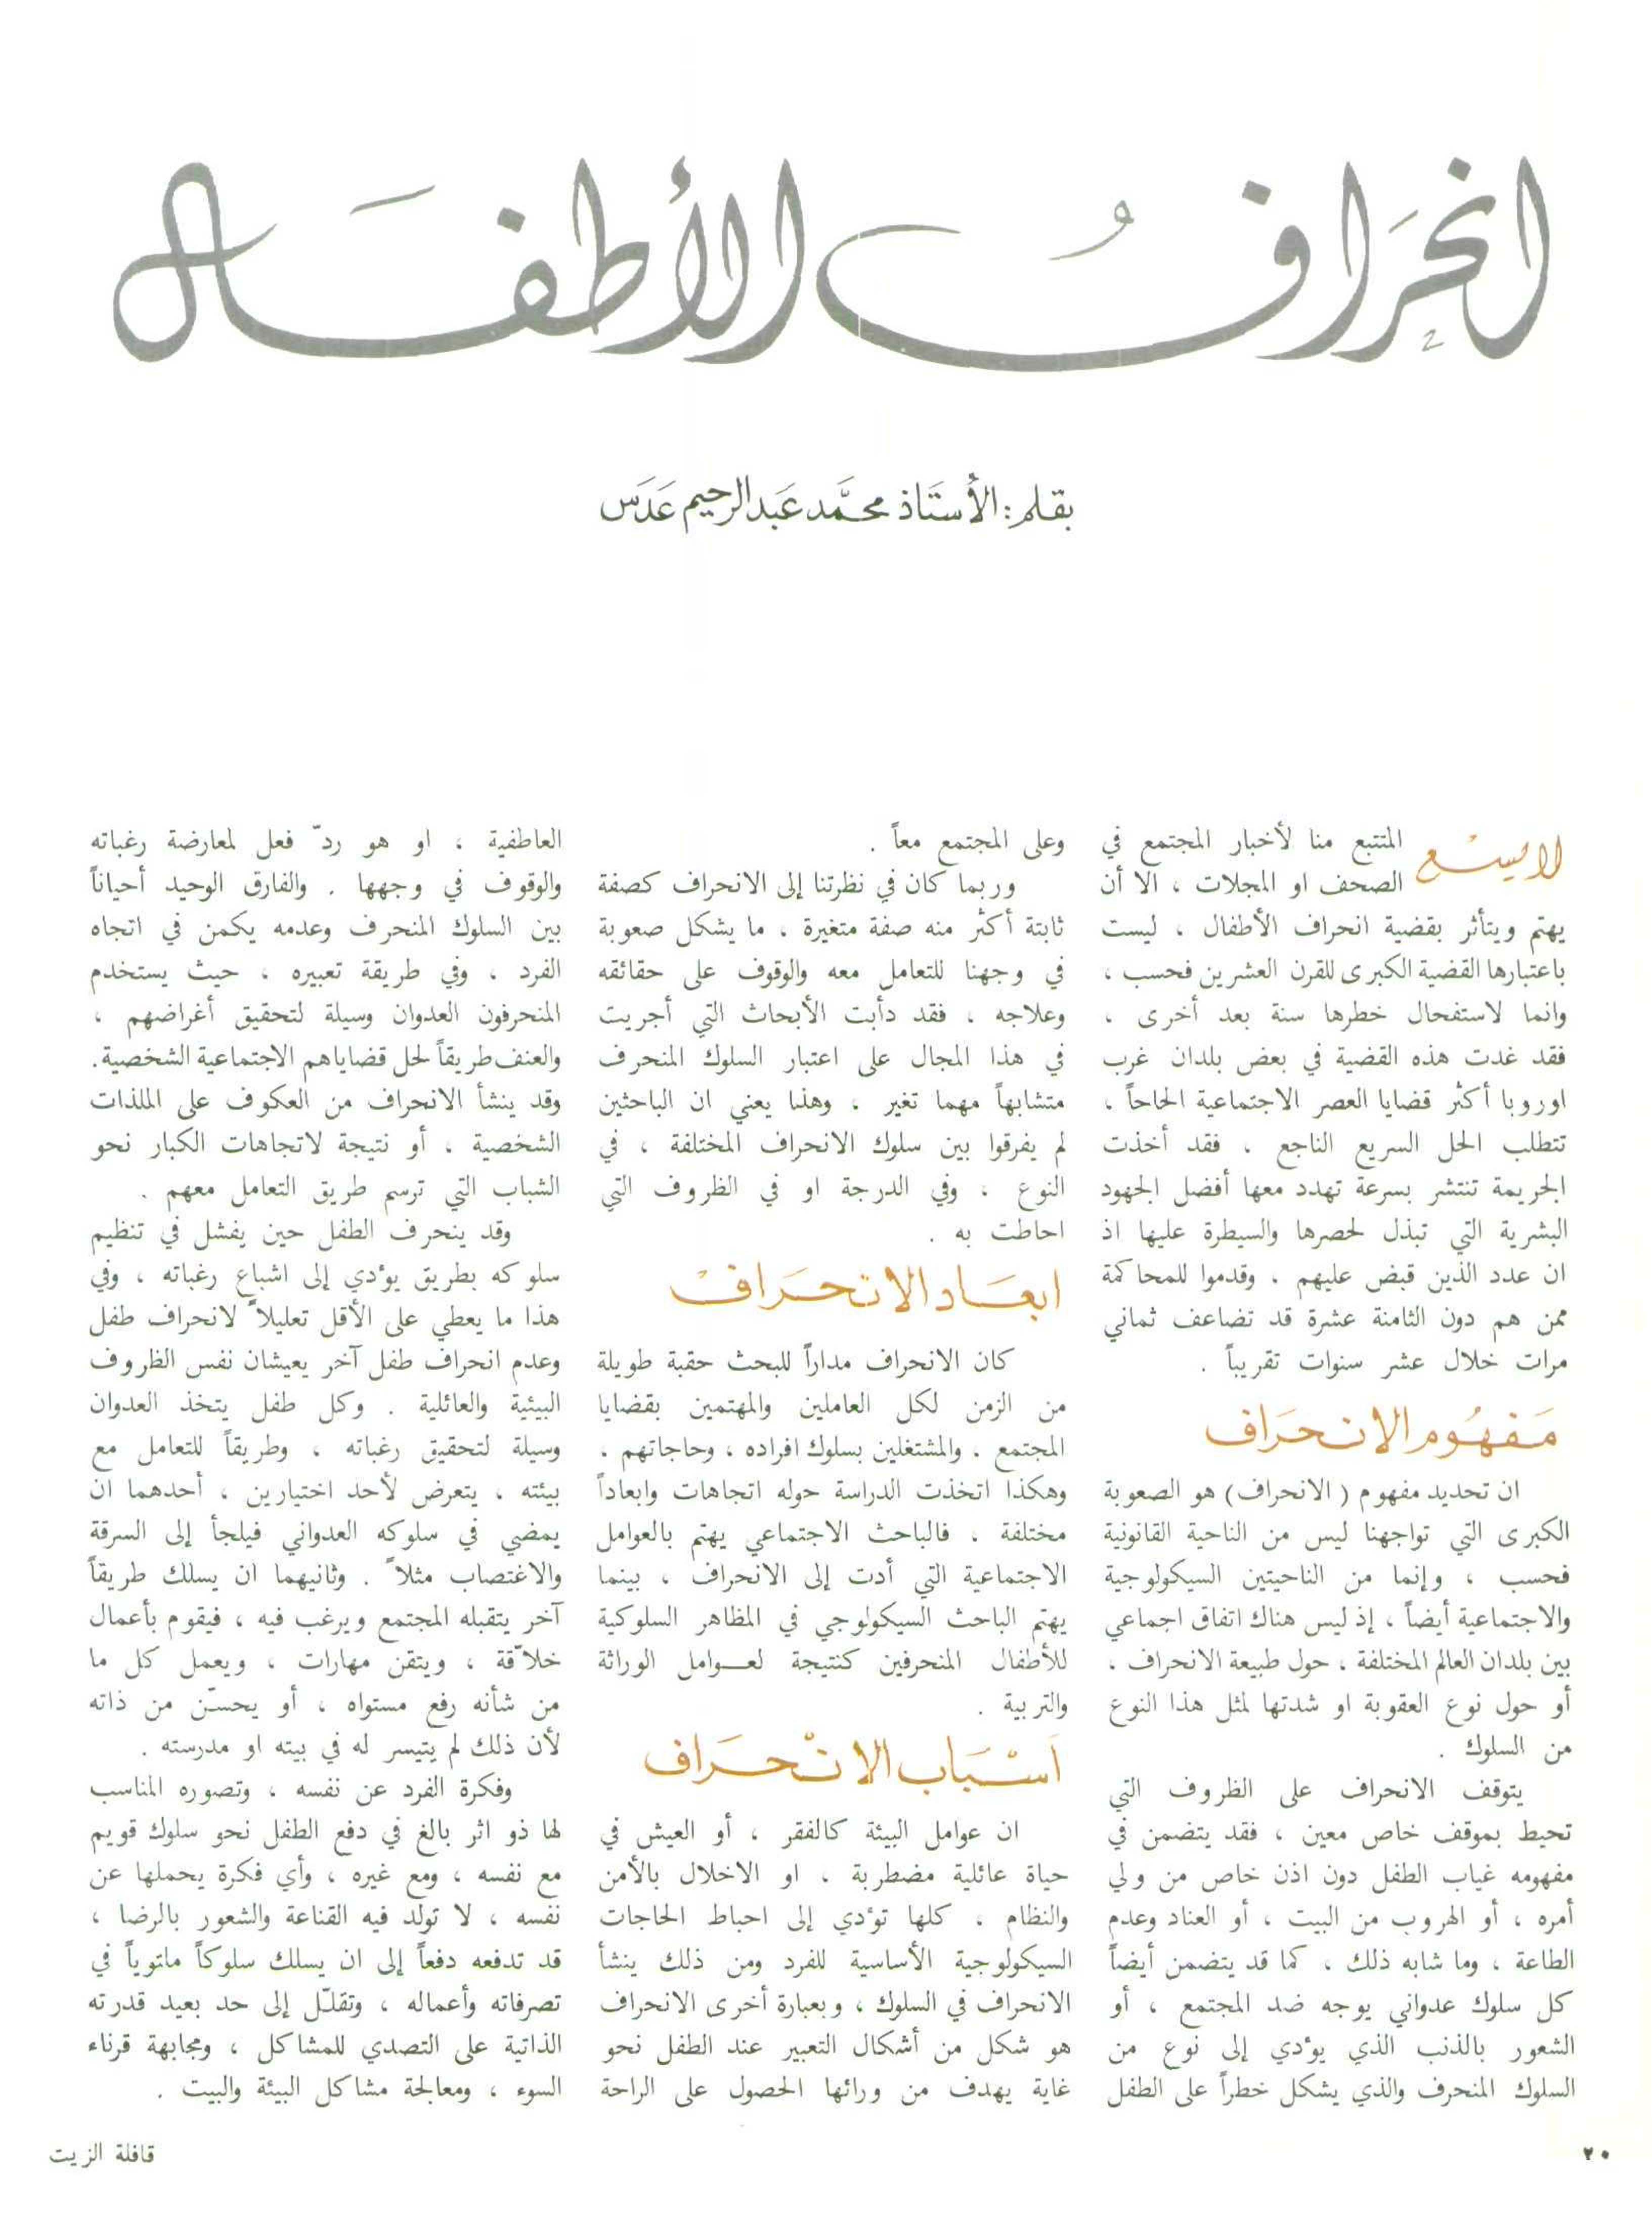 انحراف الأطفال
بقلم: الأستاذ محمّد عبد الرحيم عدس
لا يسع المتتبع منا لأخبار المجتمع في
الصحف او المجلات ، الا أن
يهتم ويتأثر بقضية انحراف الأطفال ، ليست
باعتبارها القضية الكبرى للقرن العشرين فحسب ،
وانما لاستفحال خطرها سنة بعد أخرى ،
فقد غدت هذه القضية في بعض بلدان غرب
اوروبا أكثر قضايا العصر الاجتماعية الحاحاً ،
تتطلب الحل السريع الناجع ، فقد أخذت
الجريمة تنتشر بسرعة تهدد معها أفضل الجهود
البشرية التي تبذل لحصرها والسيطرة عليها اذ
ان عدد الذين قبض عليهم ، وقدموا للمحاكمة
ممن هم دون الثامنة عشرة قد تضاعف ثماني
مرات خلال عشر سنوات تقريباً .
مفهوم الانحراف
ان تحديد مفهوم ( الانحراف ) هو الصعوبة
الكبرى التي تواجهنا ليس من الناحية القانونية
فحسب ، وإنما من الناحيتين السيكولوجية
والاجتماعية أيضاً ، إذ ليس هناك اتفاق اجماعي
بين بلدان العالم المختلفة ، حول طبيعة الانحراف ،
أو حول نوع العقوبة او شدتها لمثل هذا النوع
من السلوك .
يتوقف الانحراف على الظروف التي
تحيط بموقف خاص معين ، فقد يتضمن في
مفهومه غياب الطفل دون اذن خاص من ولي
أمره ، أو الهروب من البيت ، أو العناد وعدم
الطاعة ، وما شابه ذلك ، كما قد يتضمن أيضاً
كل سلوك عدواني يوجه ضد المجتمع ، أو
الشعور بالذنب الذي يؤدي إلى نوع من
السلوك المنحرف والذي يشكل خطراً على الطفل
وعلى المجتمع معاً .
وربما كان في نظرتنا إلى الانحراف كصفة
ثابتة أكثر منه صفة متغيرة ، ما يشكل صعوبة
في وجهنا للتعامل معه والوقوف على حقائقه
وعلاجه ، فقد دأبت الأبحاث التي أجريت
في هذا المجال على اعتبار السلوك المنحرف
متشابهاً مهما تغير ، وهذا يعني ان الباحثين
لم يفرقوا بين سلوك الانحراف المختلفة ، في
النوع ، وفي الدرجة او في الظروف التي
احاطت به .
ابعاد الانحراف
كان الانحراف مداراً للبحث حقبة طويلة
من الزمن لكل العاملين والمهتمين بقضايا
المجتمع ، والمشتغلين بسلوك افراده ، وحاجاتهم ،
وهكذا اتخذت الدراسة حوله اتجاهات وابعاداً
مختلفة ، فالباحث الاجتماعي يهتم بالعوامل
الاجتماعية التي أدت إلى الانحراف ، بينما
يهتم الباحث السيكولوجي في المظاهر السلوكية
للأطفال المنحرفين كنتيجة لعوامل الوراثة
والتربية .
أسباب الانحراف
ان عوامل البيئة كالفقر ، أو العيش في
حياة عائلية مضطربة ، او الاخلال بالأمن
والنظام ، كلها تؤدي إلى احباط الحاجات
السيكولوجية الأساسية للفرد ومن ذلك ينشأ
الانحراف في السلوك ، وبعبارة أخرى الانحراف
هو شكل من أشكال التعبير عند الطفل نحو
غاية يهدف من ورائها الحصول على الراحة
العاطفية ، او هو ردّ فعل لمعارضة رغباته
والوقوف في وجهها . والفارق الوحيد أحياناً
بين السلوك المنحرف وعدمه يكمن في اتجاه
الفرد ، وفي طريقة تعبيره ، حيث يستخدم
المنحرفون العدوان وسيلة لتحقيق أغراضهم ،
والعنف طريقاً لحل قضاياهم الاجتماعية الشخصية.
وقد ينشأ الانحراف من العكوف على الملذات
الشخصية ، أو نتيجة لاتجاهات الكبار نحو
الشباب التي ترسم طريق التعامل معهم .
وقد ينحرف الطفل حين يفشل في تنظيم
سلوكه بطريق يؤدي إلى اشباع رغباته ، وفي
هذا ما يعطي على الأقل تعليلاً لانحراف طفل
وعدم انحراف طفل آخر يعيشان نفس الظروف
البيئية والعائلية . وكل طفل يتخذ العدوان
وسيلة لتحقيق رغباته ، وطريقاً للتعامل مع
بيئته ، يتعرض لأحد اختيارين ، أحدهما ان
يمضي في سلوكه العدواني فيلجأ إلى السرقة
والاغتصاب مثلاً . وثانيهما ان يسلك طريقاً
آخر يتقبله المجتمع ويرغب فيه ، فيقوم بأعمال
خلاّقة ، ويتقن مهارات ، ويعمل كل ما
من شأنه رفع مستواه ، أو يحسّن من ذاته
لأن ذلك لم يتيسر له في بيته او مدرسته .
وفكرة الفرد عن نفسه ، وتصوره المناسب
لها ذو اثر بالغ في دفع الطفل نحو سلوك قويم
مع نفسه ، ومع غيره ، وأي فكرة يحملها عن
نفسه ، لا تولد فيه القناعة والشعور بالرضا ،
قد تدفعه دفعاً إلى ان يسلك سلوكاً ملتوياً في
تصرفاته وأعماله ، وتقلّل إلى حد بعيد قدرته
الذاتية على التصدي للمشاكل ، ومجابهة قرناء
السوء ، ومعالجة مشاكل البيئة والبيت .
٢٠
قافلة الزيت